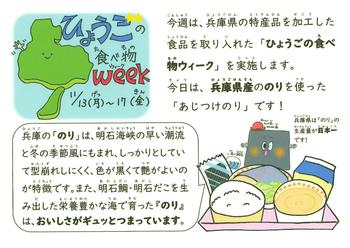 ひょうごの
食べ物
ウィーク
week
11/13(月)~17(金)
今週は、兵庫県の特産品を加工した
食品を取り入れた「ひょうごの食べ
物ウィーク」を実施します。
今日は、兵庫県産ののりを使った
「あじつけのり」です！
兵庫県は「のり」の
生産量が日本一
です！
兵庫の「のり」は、明石海峡の早い潮流
と冬の季節風にもまれ、しっかりとしてい
て型崩れしにくく、色が黒くて艶がよいの
が特徴です。また、明石鯛・明石だこを生
み出した栄養豊かな海で育った『のり』
は、おいしさがギュッとつまっています。